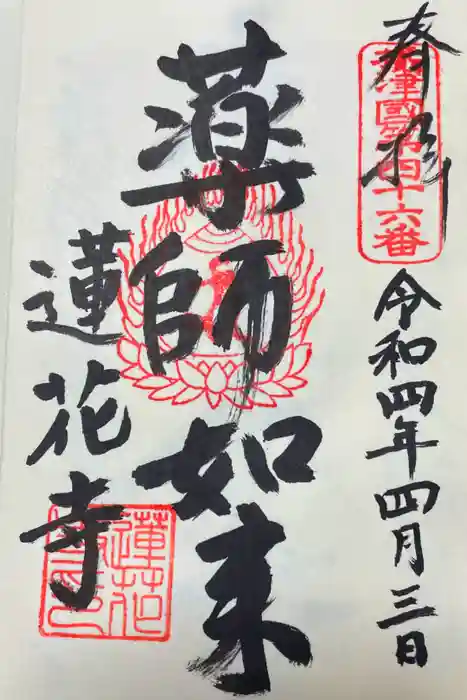 奉拝
津國第四十六番
令和四年四月三日
薬師如来
蓮花寺
蓮花